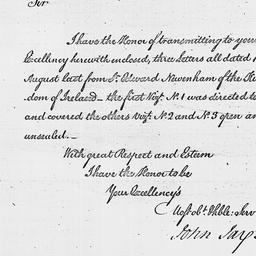 Sir
I have the Honor of transmitting to your
Excellency herewith enclosed, three Letters all dated
August last from Sr. Edward Newenham of the
dom of Ireland — the first Vizt. No. 1 was directed to
and covered the others Vizt. No. 2 and No. 3 open an
unsealed. —
With great Respect and Esteem
I have the Honor to be
Your Excellency's
Most obt. & Hble: Serv
John Jay